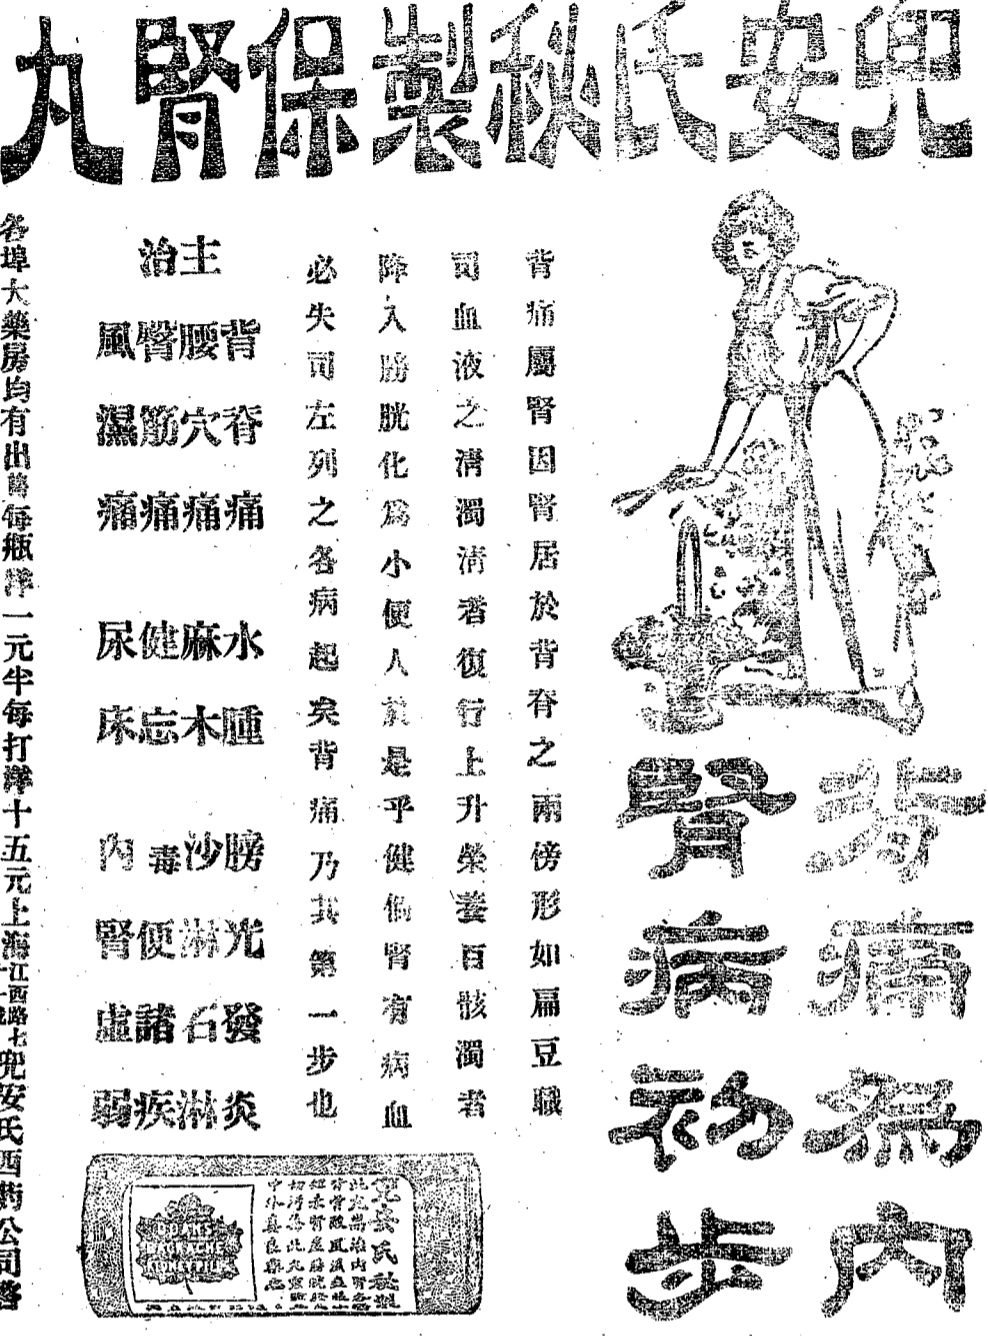 兜安氏秘製保腎丸
背痛為內
腎病初步
背痛屬腎因腎居於背脊之兩傍形如扁豆職
司血液之清濁清者復行上升榮養百骸濁者
降入膀胱化為小便人於是乎健倘腎有病血
必失司左列之各病起矣背痛乃其第一步也
主治
背脊痛
腰穴痛
臀筋痛
風濕痛
水腫
麻木
健忘
尿床
膀光發炎
沙淋石淋
毒便諸疾
內腎虛弱
各埠大藥房均有出售每瓶洋一元半每打洋十五元上海江西路七十一號兜安氏西藥公司啓
兜安氏秘製
DOANS
BACKACHE
KIDNEY PILLS